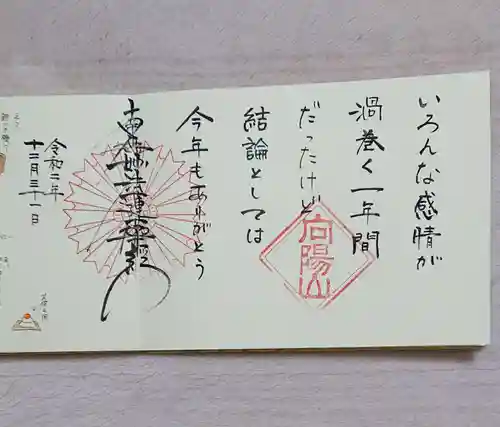 いろんな感情が
渦巻く一年間
だったけど
結論としては
今年もありがとう
向陽山
南無妙法蓮華経
令和二年
十二月三十一日